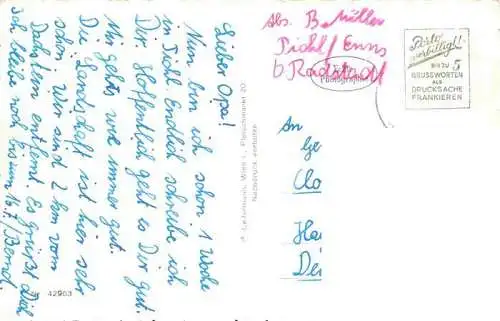 Lieber Opa!
Nun bin ich schon 1 Woche
in Pichl. Endlich schreibe ich
Dir. Hoffentlich geht es Dir gut.
Mir geht's wie immer gut.
Die Landschaft ist hier sehr
schön. Wir sind 2 km vom
Dachstein entfernt. Es grüßt Dich
Ich bleibe noch bis zum 16.7/Bernd.
42963
P. Ledermann, Wien I., Fleischmarkt 20
Nachdruck verboten
Abs. B. Müller
Pichl/Enns
b. Radstadt
Photographie
Porto
verbilligt!
BIS ZU 5
GRUSSWORTEN
ALS
DRUCKSACHE
FRANKIEREN
An